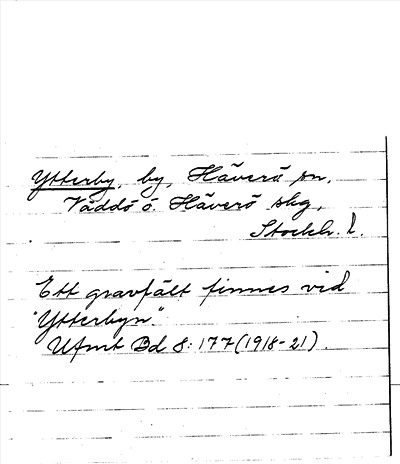 Ytterby, by, Häverö sn,
Väddö o. Häverö skg,
Stockh. l.
Ett gravfält finnes vid
"Ytterbyn".
Ufmt Bd 8: 177 (1918-21).